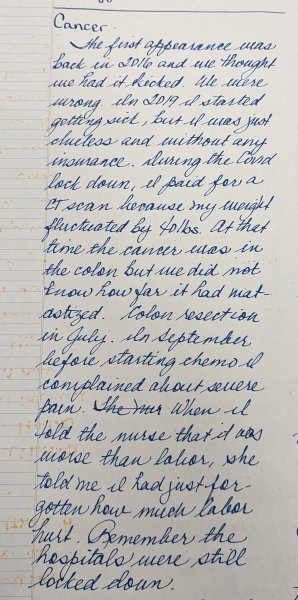 Cancer.
The first appearance was
back in 2016 and we thought
we had it kicked. We were
wrong. In 2019 I started
getting sick, but I was just
clueless and without any
insurance. During the Covid
lock down, I paid for a
CT scan because my weight
fluctuated by 40 lbs. At that
time the cancer was in
the colon but we did not
know how far it had mat-
astized. Colon resection
in July. In September
before starting chemo I
complained about severe
pain. She nur When I
told the nurse that it was
worse than labor, she
told me I had just for-
gotten how much labor
hurt. Remember the
hospitals were still
locked down.